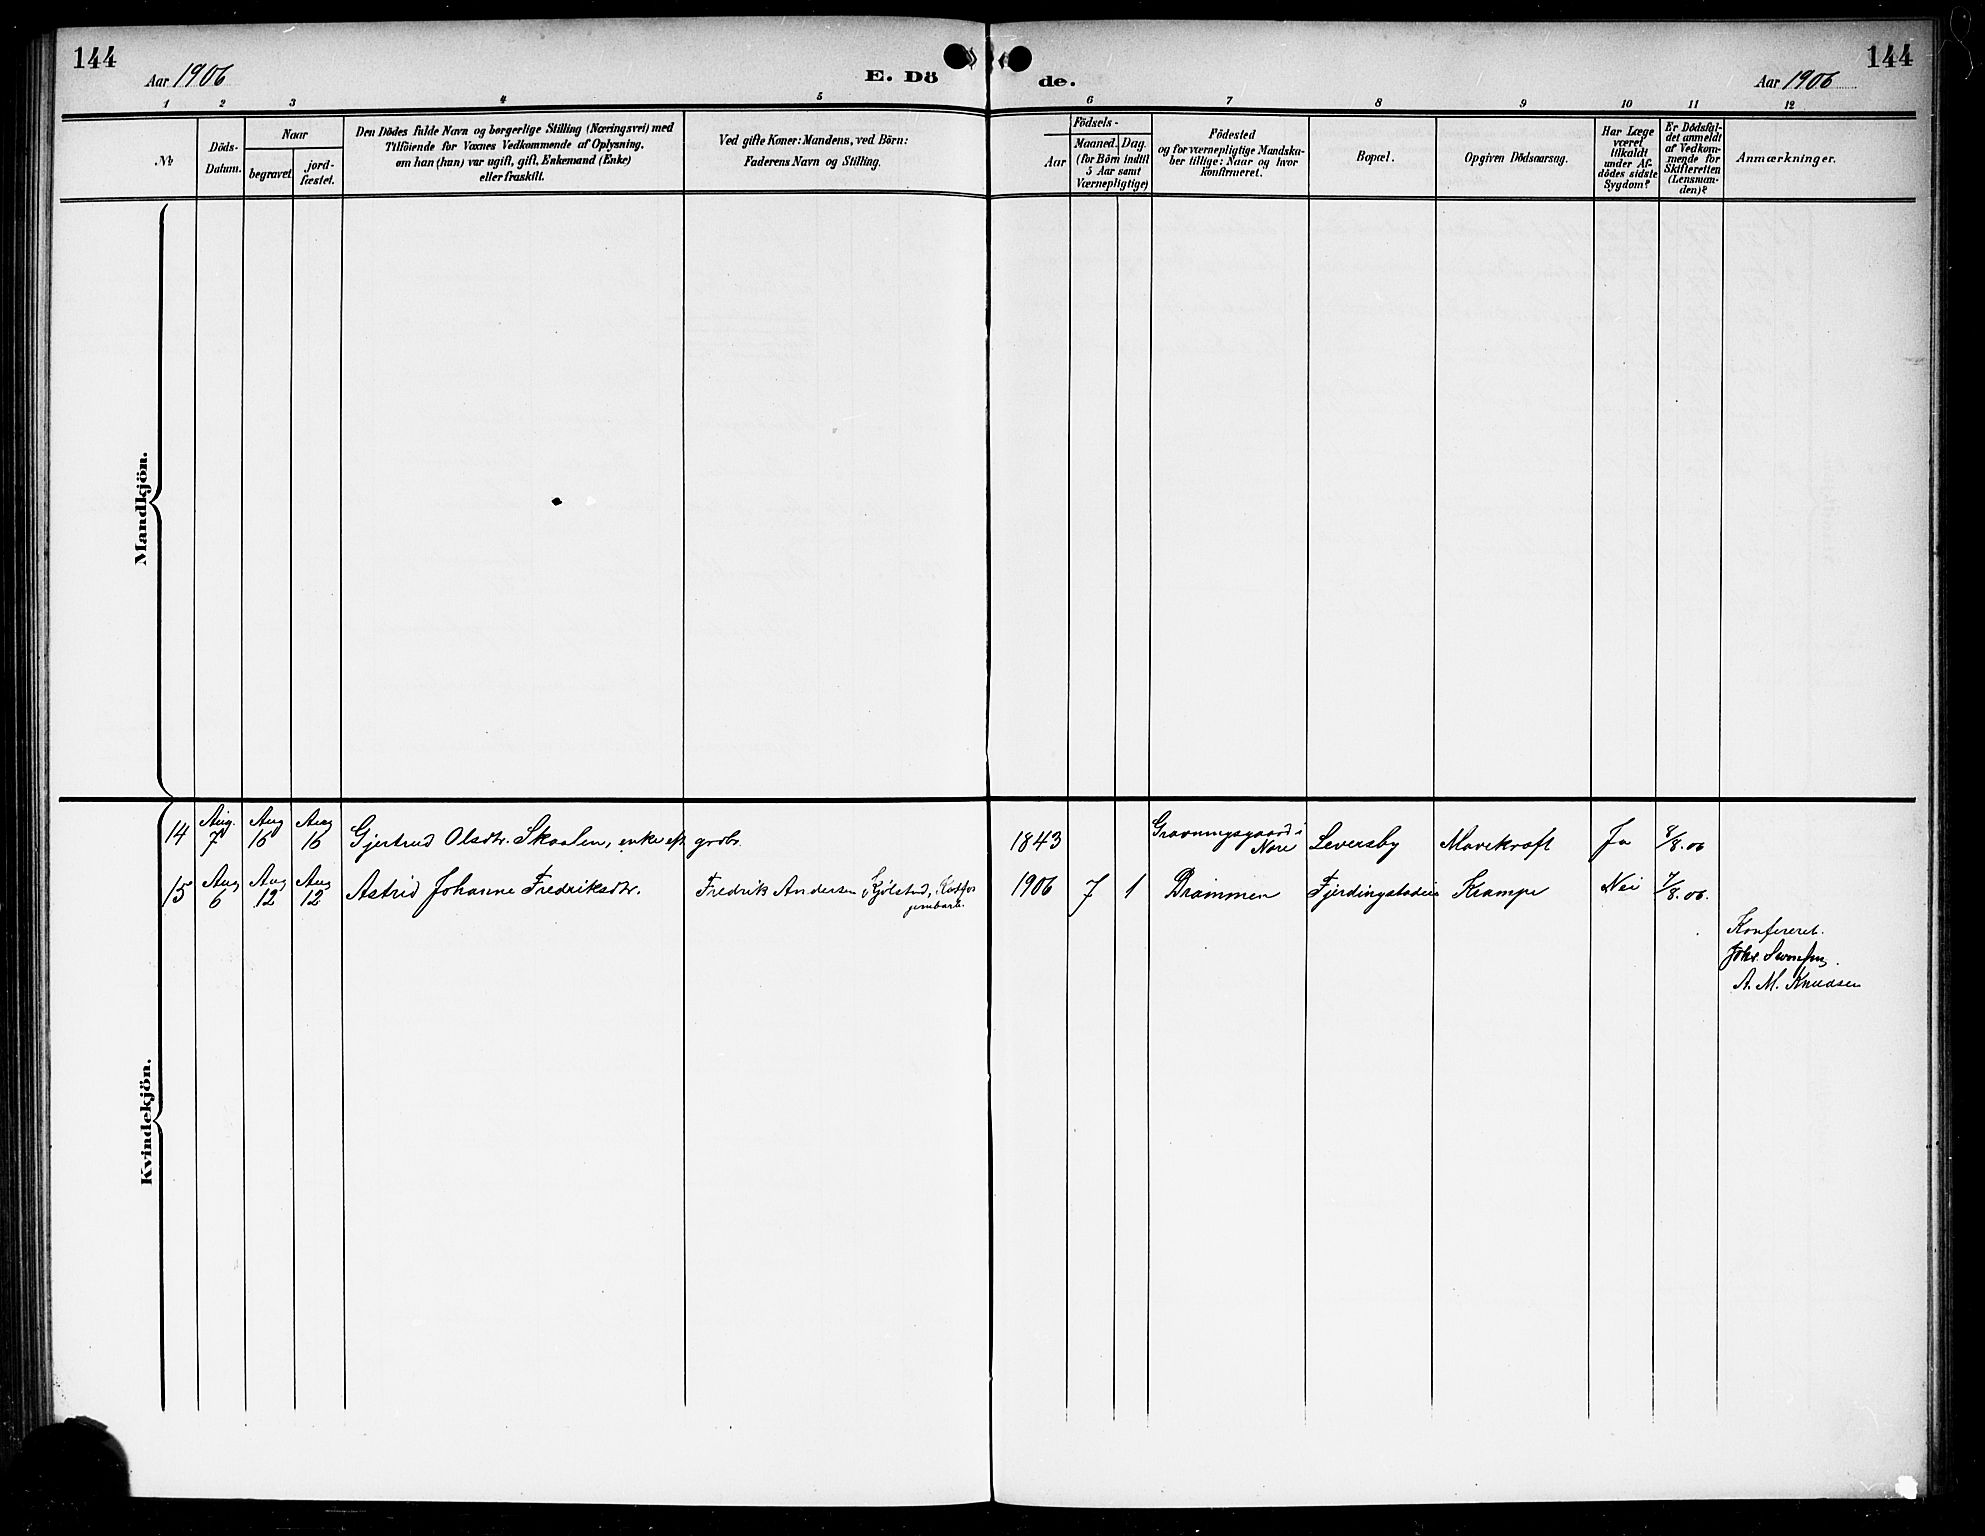 144
Aar 1906
E. Dö
de.
Aar 1906
144
1 2 3 4 5 6 7 8 9 10 11 12
No
Döds-
Datum.
Naar
begravet
jord-
fæstet.
Den Dödes fulde Navn og borgerlige Stilling (Næringsvei) med
Tilföiende for Voxnes Vedkommende af Oplysning,
om han (hun) var ugift, gift, Enkemand (Enke)
eller fraskilt.
Ved gifte Koner: Mandens, ved Börn:
Faderens Navn og Stilling.
Födsels-
Aar
Maaned.
Dag.
(for Börn indtil
5 Aar samt
Værnepligtige)
Födested
og for værnepligtige Mandska-
ber tillige: Naar og hvor
konfirmeret.
Bopæl.
Opgiven Dödsaarsag.
Har Læge
været
tilkaldt
under Af-
dödes sidste
Sygdom?
Er Dödsfal-
det anmeldt
af Vedkom-
mende for
Skifteretten
(Lensman-
den)?
Anmærkninger.
Mandkjön.
Kvindekjön.
14 Aug. 7 Aug 16 Aug 16 Gjertrud Olsdtr. Skaalen, enke eft. grdbr. 1843 Gravningsgaard i Nore Leversby Mavekræft Ja 8/8.06
15 Aug 6 Aug 12 Aug 12 Astrid Johanne Fredriksdtr. Fredrik Andersen Kjölstad, 1906 7 1 Drammen Fjerdingstadeie Krampe Nei 7/8.06.
Konfereret.
A. M. Knudsen